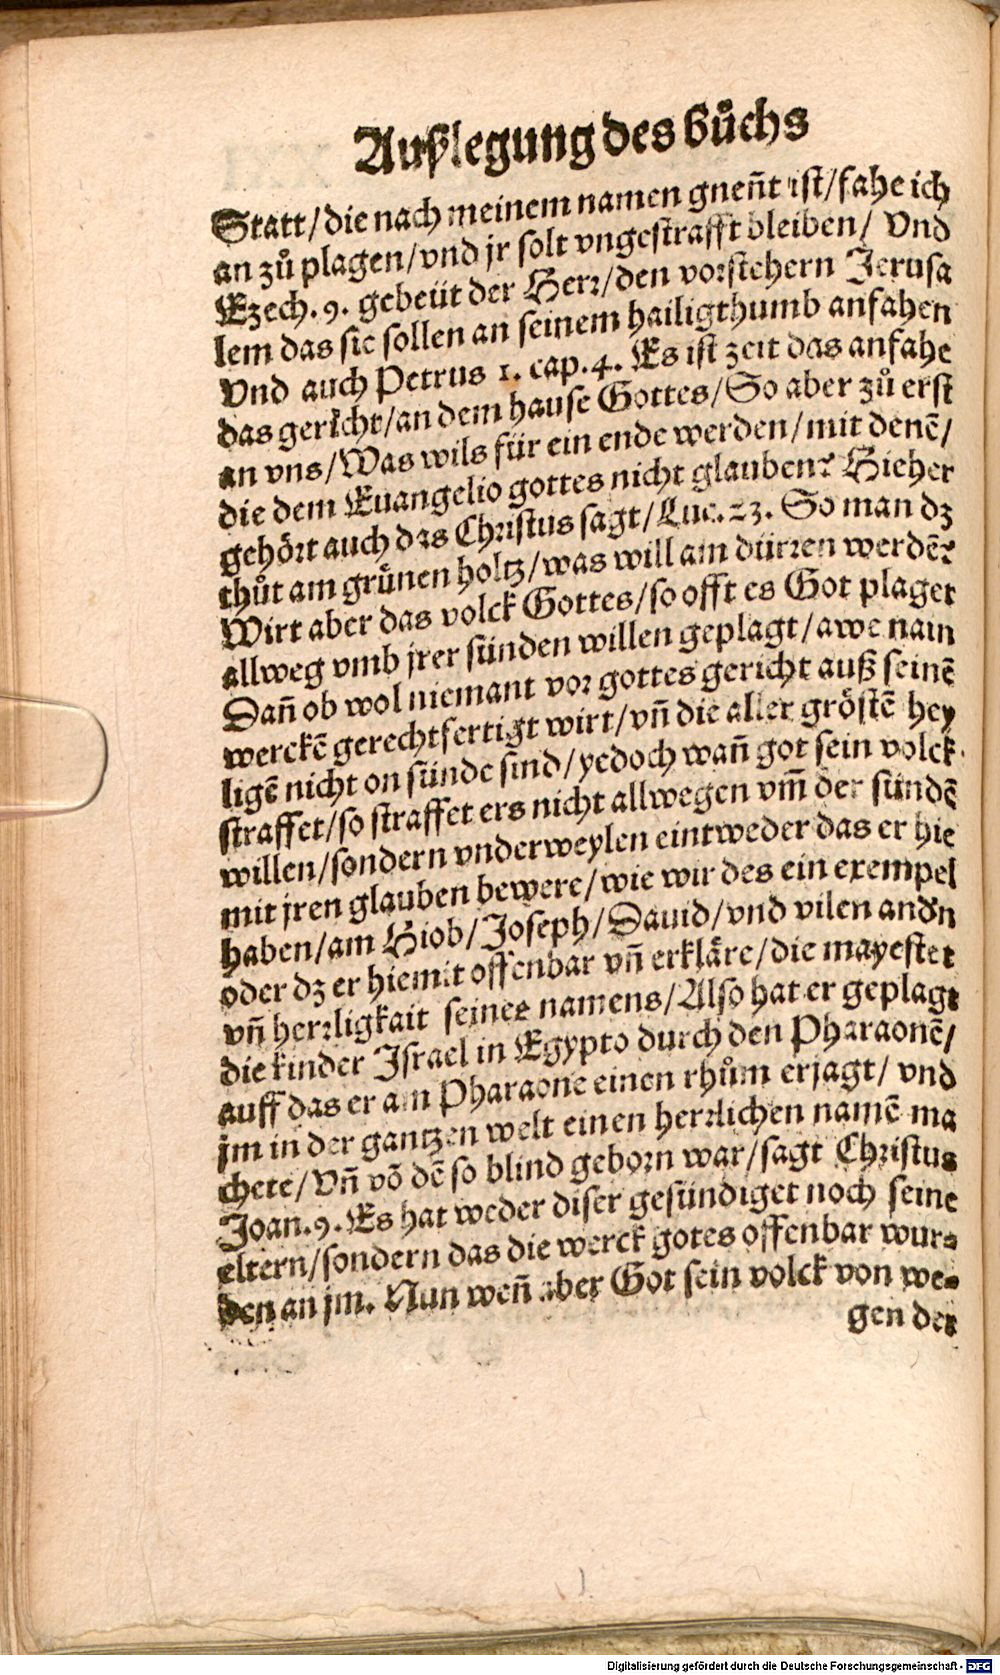 Außlegung des bůchs
Statt/die nach meinem namen gneñt ist/fahe ich
an zů plagen/vnd jr solt vngestrafft bleiben/ Vnd
Ezech.9. gebeüt der Herr/den vorstehern Jerusa
lem das sie sollen an seinem hailigthumb anfahen
Vnd auch Petrus 1. cap.4. Es ist zeit das anfahe
das gericht/an dem hause Gottes/So aber zů erst
an vns/Was wils für ein ende werden/mit denē/
die dem Euangelio gottes nicht glauben? Hieher
gehört auch das Christus sagt/Luc.23. So man dz
thůt am grünen holtz/was will am dürren werdē?
Wirt aber das volck Gottes/so offt es Got plaget
allweg vmb jrer sünden willen geplagt/awe nain
Dañ ob wol niemant vor gottes gericht auß seinē
werckē gerechtfertigt wirt/vñ die aller gröstē hey
ligē nicht on sünde sind/yedoch wañ got sein volck
straffet/so straffet ers nicht allwegen vm̃ der sündē
willen/sondern vnderweylen eintweder das er hie
mit jren glauben bewere/wie wir des ein exempel
haben/am Hiob/Joseph/Dauid/vnd vilen and'n
oder dz er hiemit offenbar vñ erkläre/die mayestet
vñ herrligkait seines namens/Also hat er geplagt
die kinder Israel in Egypto durch den Pharaonē/
auff das er am Pharaone einen rhům erjagt/ vnd
jm in der gantzen welt einen herrlichen namē ma
chete/Vñ vō dē so blind geborn war/sagt Christus
Joan.9. Es hat weder diser gesündiget noch seine
eltern/sondern das die werck gotes offenbar wur⸗
den an jm. Nun weñ aber Got sein volck von we⸗
gen der
Digitalisierung gefördert durch die Deutsche Forschungsgemeinschaft - DFG